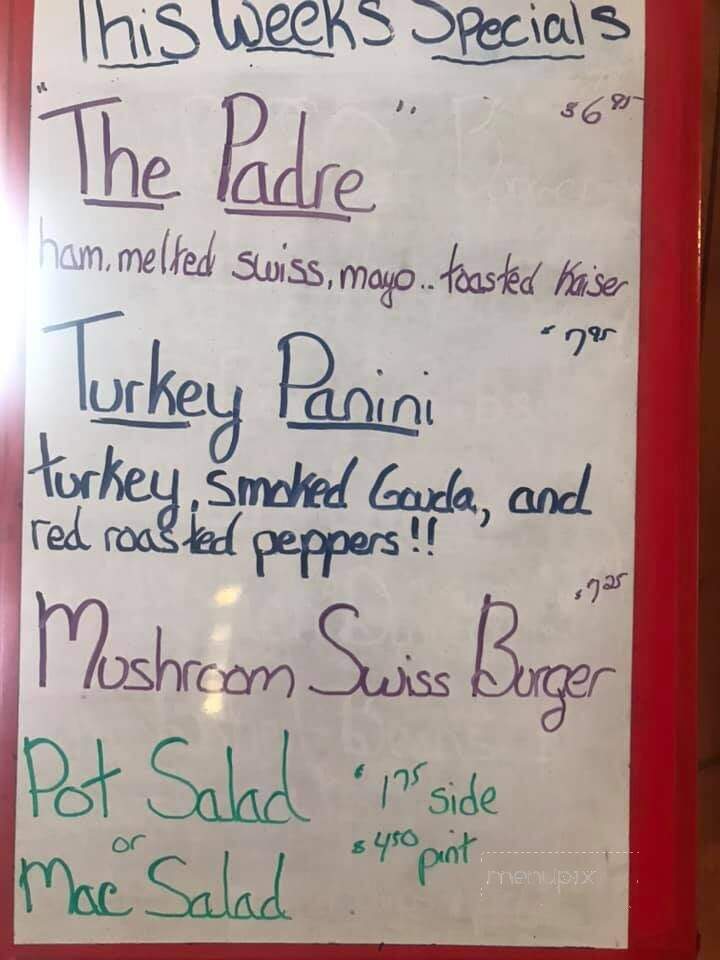 This Weeks Specials
"The Padre" $6.95
ham, melted swiss, mayo.. toasted Kaiser
$7.95
Turkey Panini
turkey, smoked Gouda, and
red roasted peppers!!
$7.25
Mushroom Swiss Burger
Pot Salad $1.75 side
or $4.50 pint
Mac Salad
menupix